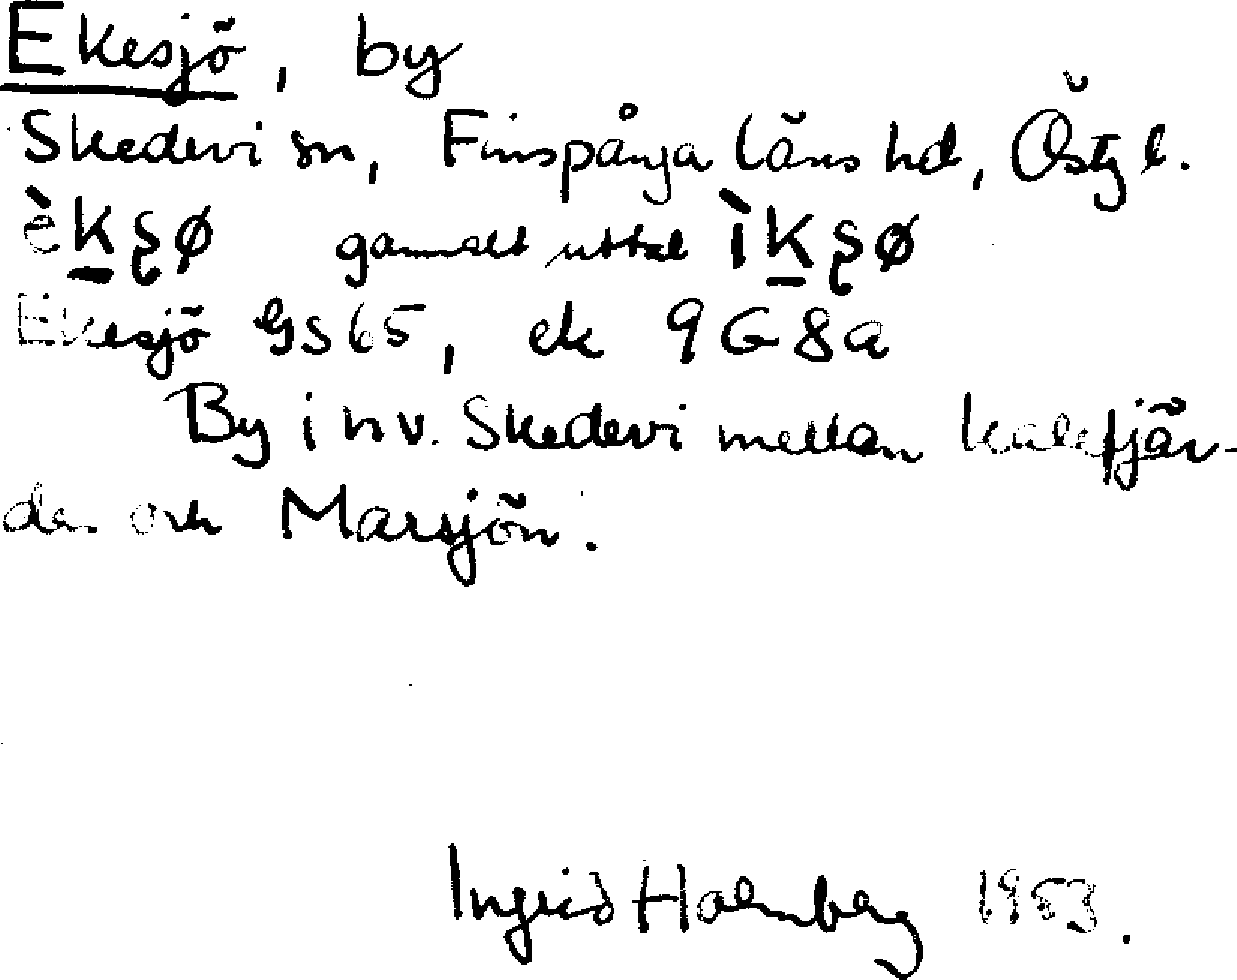 Ekesjö, by
Skedevi sn, Finspånga läns hd, Östg l.
èk̲ʂø gammalt uttal ìk̲ʂø
Ekesjö GS65, ek 9G8a
By i nv. Skedevi mellan kalvfjär-
den och Marsjön.
Ingrid Holmberg 1953.